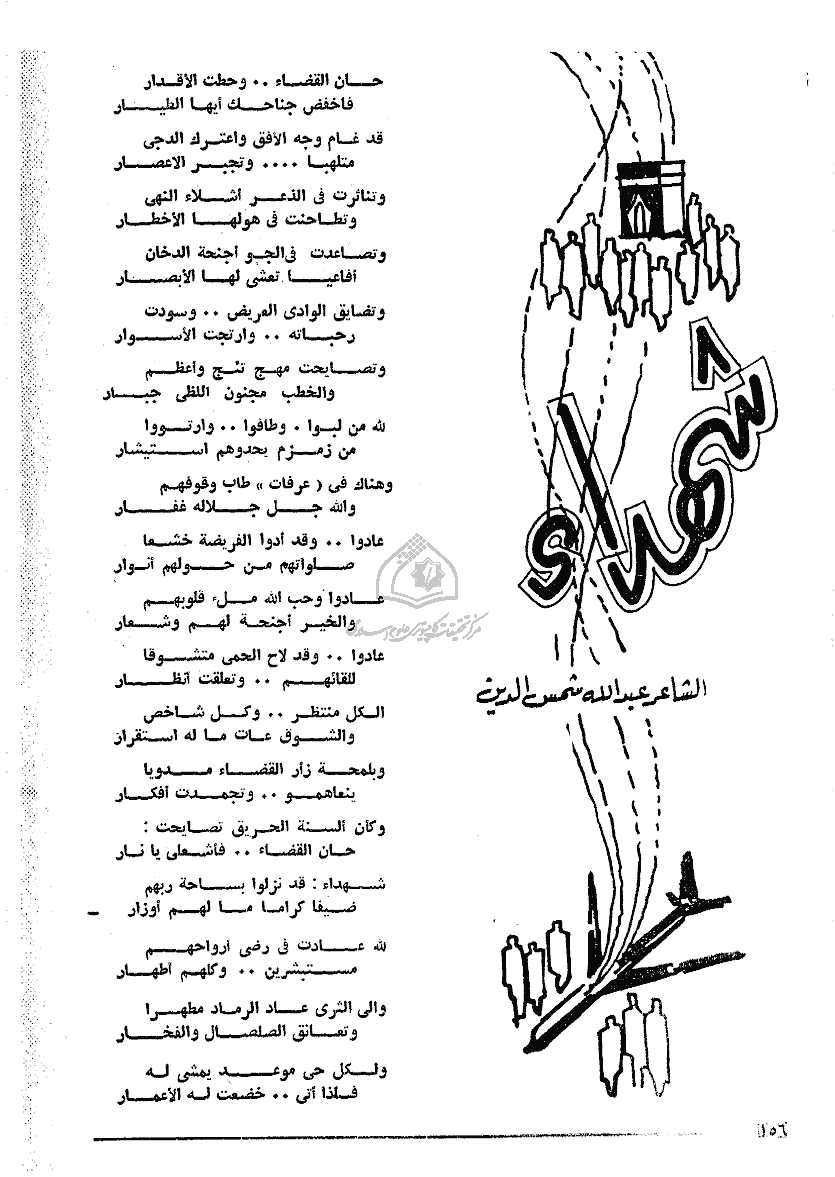 شهداء
الشاعر عبد الله شمس الدين
حــان القضــاء .. وحطت الأقــدار
فاخفض جناحــك أيهــا الطيــار
قد غــام وجه الأفق واعتــرك الدجى
متلهبــا .... وتجبــر الاعصــار
وتناثرت فى الذعــر أشــلاء النهى
وتطــاحنت فى هولهــا الأخطــار
وتصــاعدت فى الجــو أجنحة الدخان
أفاعيــا تعشى لهــا الأبصــار
وتضايق الوادى العريض .. وسودت
رحبــاته .. وارتجت الأســوار
وتصــايحت مهــج تئــج وأعظــم
والخطب مجنون اللظى جبــار
لله من لبــوا . وطافوا .. وارتــووا
من زمــزم يحدوهم استــيشار
وهناك فى ( عرفات » طاب وقوفهــم
والله جــل جــلاله غفــار
عادوا .. وقد أدوا الفريضة خشــعا
صــلواتهم مــن حــولهم أنــوار
عــادوا وحب الله مــلء قلوبهــم
والخيــر أجنحــة لهــم وشــعار
عادوا .. وقد لاح الحمى متشــوقا
للقائهــم .. وتعلقت أنظــار
الــكل منتظــر .. وكــل شــاخص
والشــوق عــات مــا له استــقرار
وبلمحــة زأر القضــاء مــدويا
ينعاهمــو .. وتجمــدت أفكــار
وكأن ألسنــة الحريق تصــايحت :
حــان القضــاء .. فأشــعلى يا نــار
شــهداء : قد نزلوا بســاحة ربهم
ضــيفا كرامــا مــا لهــم أوزار
لله عــادت فى رضى أرواحهــم
مســتبشرين .. وكلهــم أطهــار
والى الثرى عــاد الرمــاد مطهــرا
وتعــانق الصلصــال والفخــار
ولــكل حى موعــد يمشى لــه
فــاذا أتى .. خضعت لــه الأعمــار
١٥٦